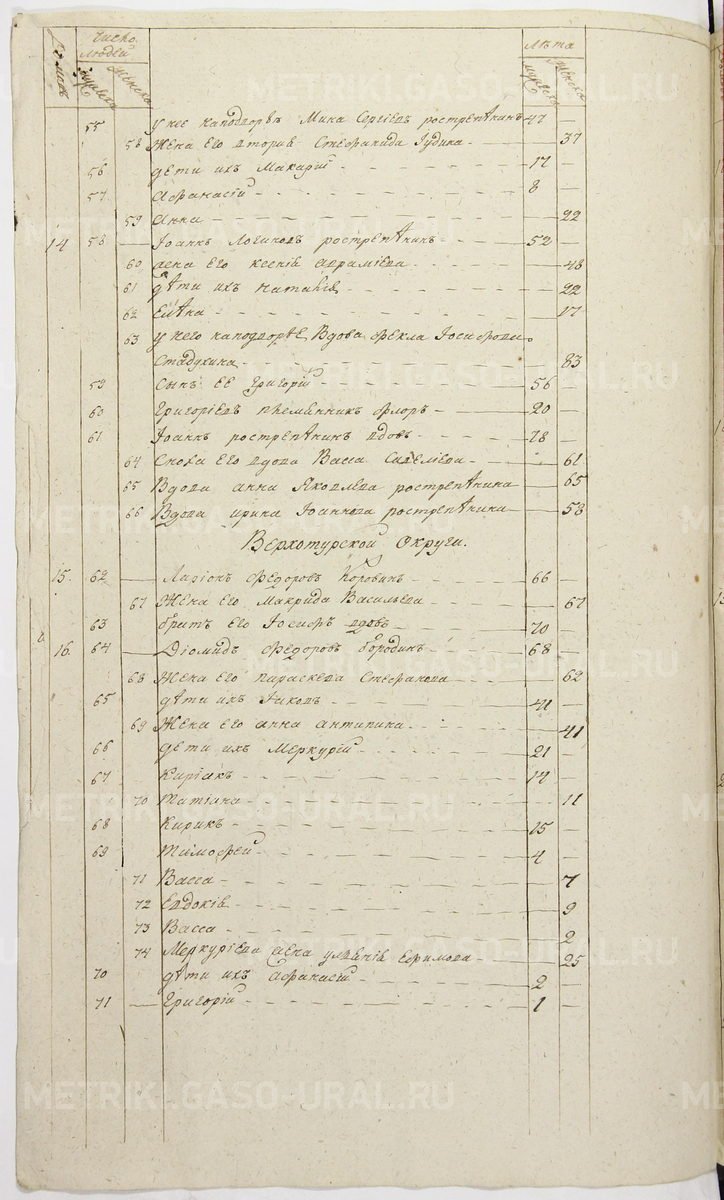 Домовъ Число людей Лѣта
мужска женска мужска женска
55 у нее наподворьѣ Мина Сергіевъ рострепѣнинъ 47 —
58 Жена его вторая Стефанида Іудина — 37
56 дети ихъ Макарій 17 —
57 Афанасій 8 —
59 Анна — 22
14 58 Іоаннъ Логиновъ рострепѣнинъ 52 —
60 жена его ксенія аврамиева — 48
61 дѣти ихъ Наталія — 22
62 Елѣна — 17
63 у него наподворьѣ Вдова фекла Іосифова
Стадухина — 83
59 Сынъ ее григорій 56 —
60 Григоріевъ племянникъ флоръ 20 —
61 Іоаннъ рострепѣнинъ вдовъ 78 —
64 Сноха его вдова Васса Савелиева — 61
65 Вдова анна Яковлева рострепѣнина — 65
66 Вдова ирина Іоаннова рострепѣнина — 58
Верхотурской Округи.
15. 62 Ларіонъ Федоровъ Коровинъ 66 —
67 Жена его Макрида Васильева — 67
63 братъ его Іосифъ вдовъ 70 —
16 64 Діомидъ Федоровъ бородинъ 68 —
68 Жена его параскева Стефанова — 62
65 дѣти ихъ Іаковъ 41 —
69 Жена его анна антипина — 41
66 дети ихъ Меркурій 21 —
67 Киріакъ 14 —
70 Татіана — 11
68 Кирикъ 15 —
69 Тимофей 4 —
71 Васса — 7
72 Евдокія — 9
73 Васса — 2
74 Меркуріева жена ульянія Ефимова — 25
70 дѣти ихъ Афанасій 2 —
71 Григорій 1 —
METRIKI.GASO-URAL.RU